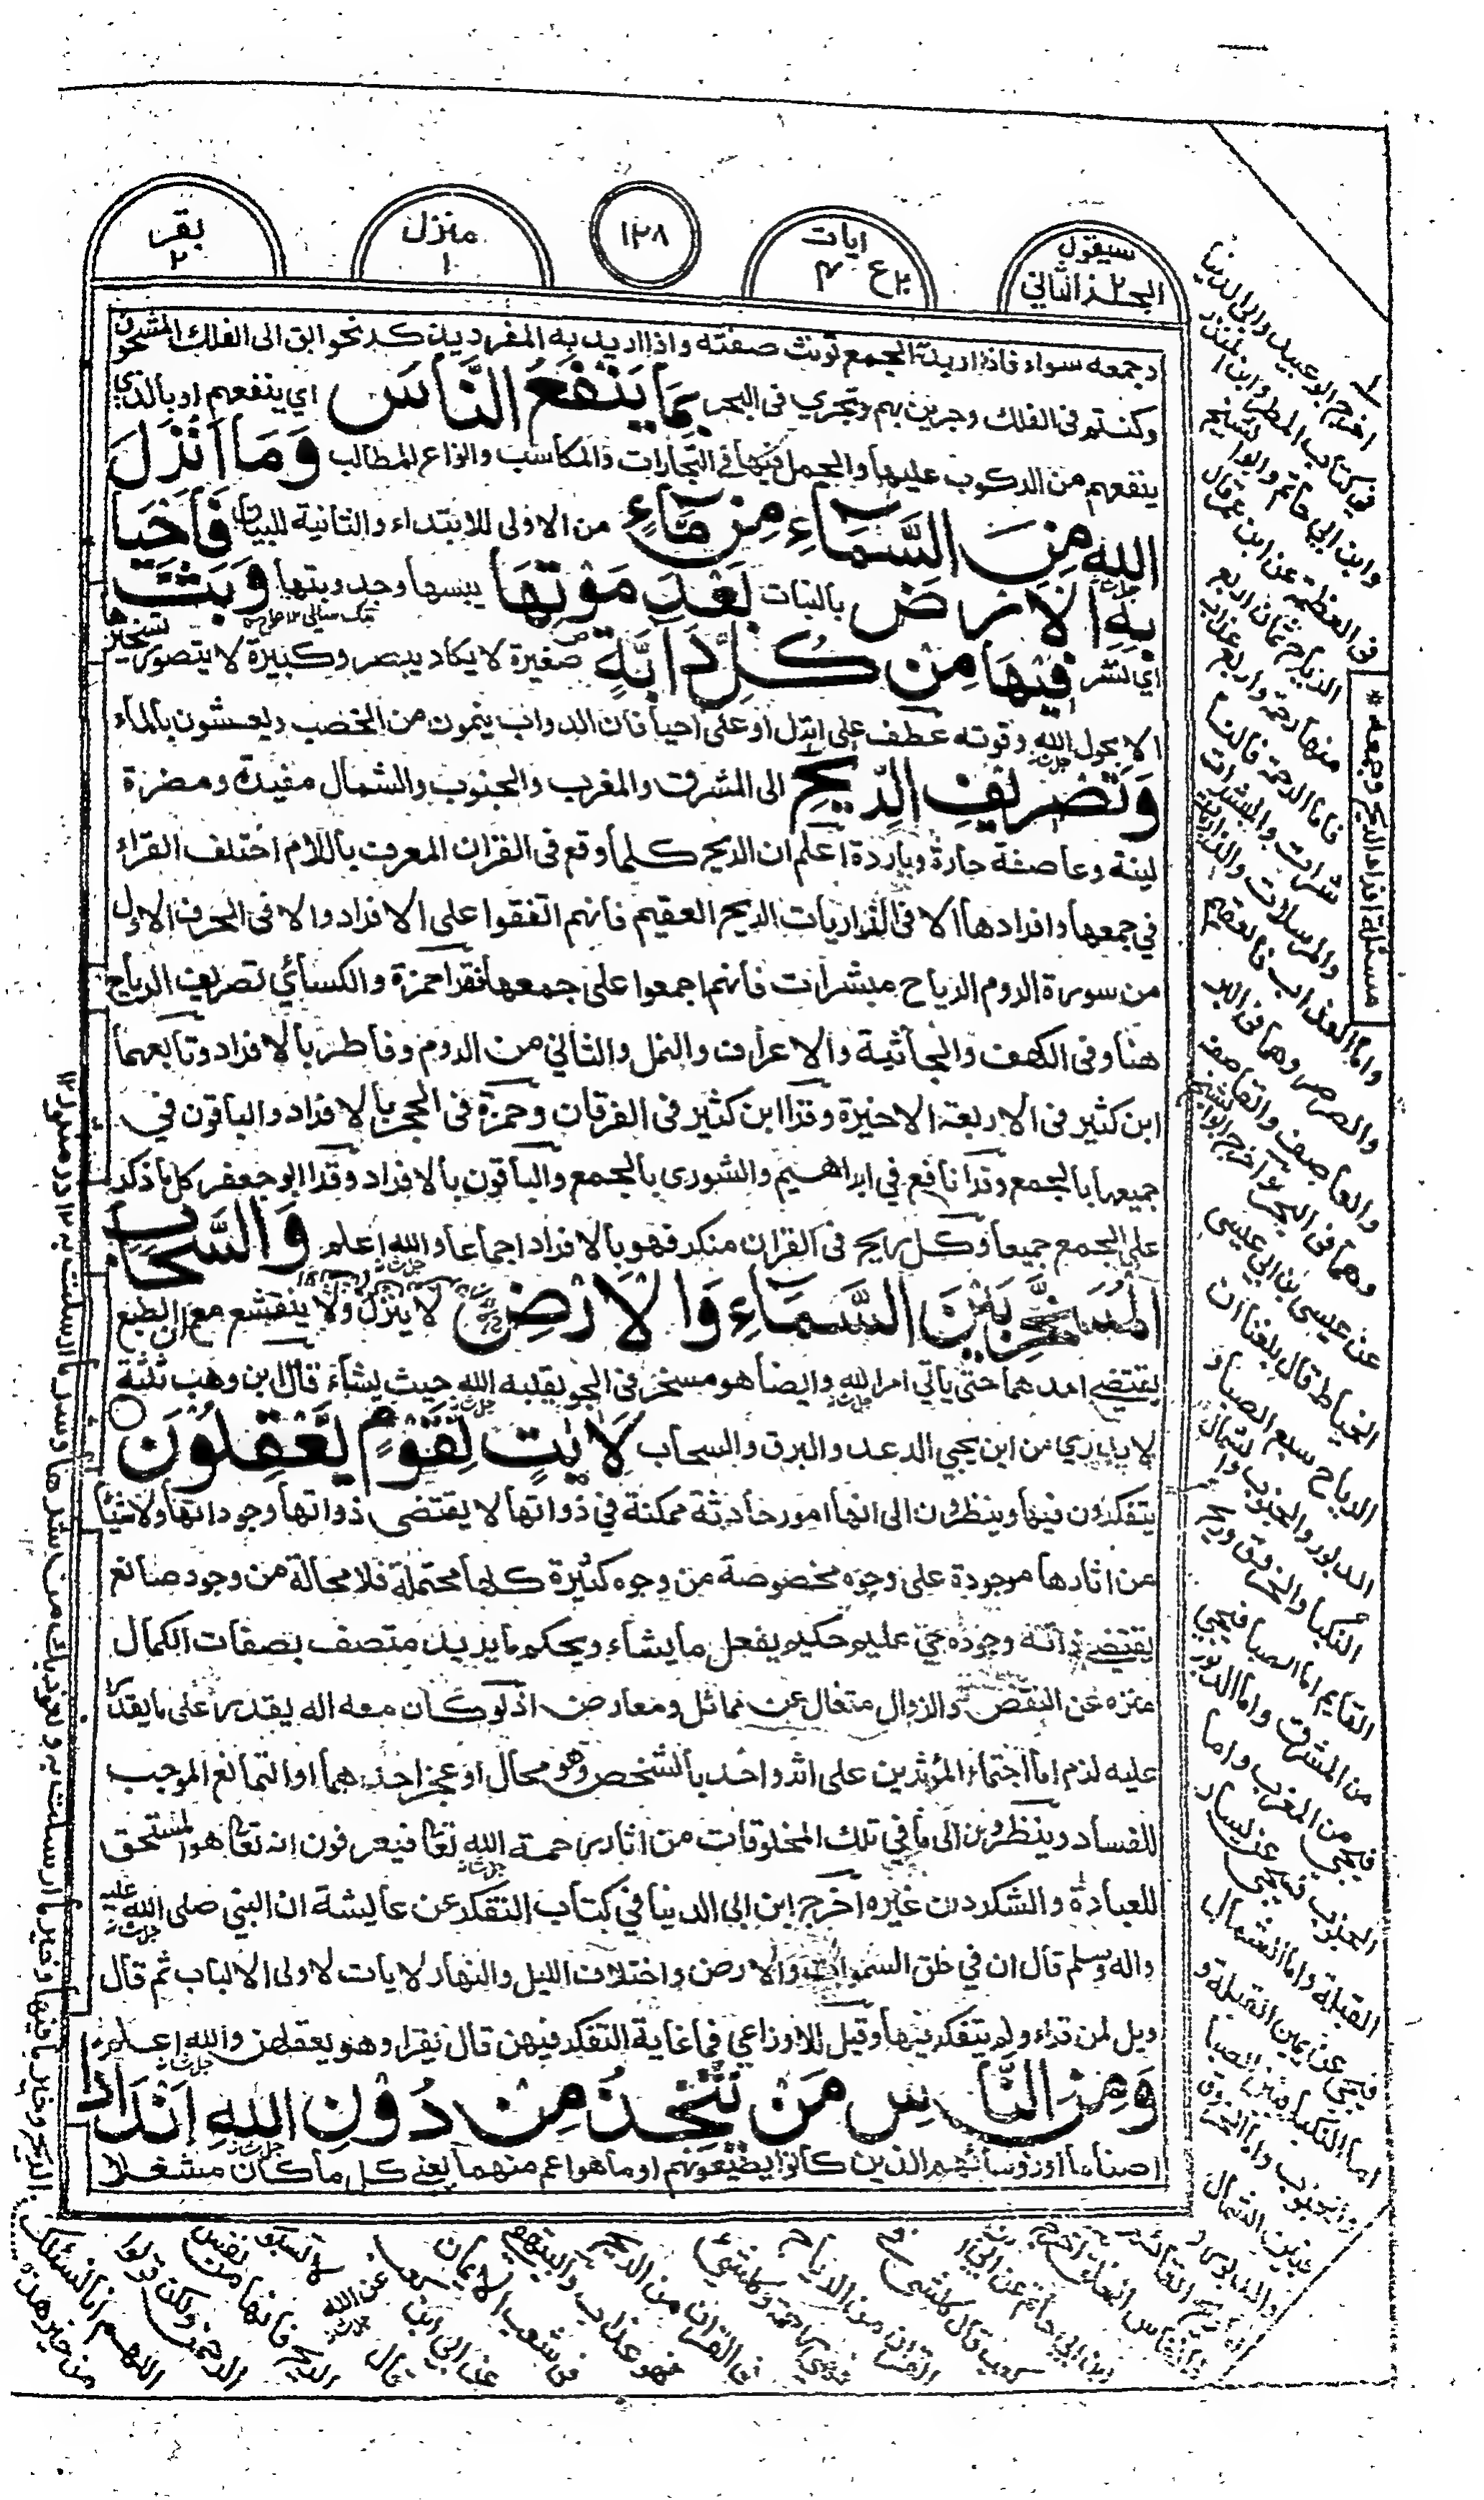 سيقول
البجلد الثاني
ايات
ع
١٢٨
منزل
١
بقر
٢
وجمعه سواء فاذا اريد به الجمع تونث صفته واذا اريد به المفرد يذكر نحو ابق الى الفلك المشحون
وكنتم في الفلك وجرين بهم وتجري في البحر بِمَا يَنْفَعُ النَّاسَ اي ينفعهم او بالذي
ينفعهم من الركوب عليها والحمل فيها في التجارات والمكاسب وانواع المطالب وَمَا أَنْزَلَ
اللهُ مِنَ السَّمَاءِ مِنْ مَّاءٍ من الاولى للابتداء والثانية للبيان فَأَحْيَا
بِهِ الْأَرْضَ بالنبات بَعْدَ مَوْتِهَا يبسها وجدوبتها وَبَثَّ
اي نشر فِيهَا مِنْ كُلِّ دَابَّةٍ صغيرة لا يكاد يبصر وكبيرة لا يتصور تسخيرها
الا بحول الله وقوته عطف على انزل او على احيا فان الدواب ينمون من الخصب ويعيشون بالماء
وَتَصْرِيفِ الرِّيحِ الى المشرق والمغرب والجنوب والشمال مفيدة ومضرة
لينة وعاصفة حارة وباردة اعلم ان الريح كلما وقع في القران المعرف باللام اختلف القراء
في جمعها وافرادها الا في الذاريات الريح العقيم فانهم اتفقوا على الافراد والا في الحرف الاول
من سورة الروم الرياح مبشرات فانهم اجمعوا على جمعها فقرا حمزة والكسائي تصريف الرياح
هنا وفي الكهف والجاثية والاعراف والنمل والثاني من الروم وفاطر بالافراد وتابعهما
ابن كثير في الاربعة الاخيرة وقرا ابن كثير في الفرقان وحمزة في الحجر بالافراد والباقون في
جميعها بالجمع وقرا نافع في ابراهيم والشورى بالجمع والباقون بالافراد وقرا ابو جعفر كل ما ذكر
على الجمع جميعا وكل ريح في القران منكر فهو بالافراد اجماعا والله اعلم وَالسَّحَابِ
الْمُسَخَّرِ بَيْنَ السَّمَاءِ وَالْأَرْضِ لا ينزل ولا ينقشع مع ان الطبع
يقتضي احدهما حتى ياتي امر الله وايضا هو مسخر في الجو يقلبه الله حيث يشاء قال ابن وهب ثلثة
لا يدري من اين يجيي الرعد والبرق والسحاب لَاٰيٰتٍ لِّقَوْمٍ يَّعْقِلُوْنَ
يتفكرون فيها وينظرون الى انها امور حادثة ممكنة في ذواتها لا يقتضي ذواتها وجوداتها ولا شيئا
من اثارها موجودة على وجوه مخصوصة من وجوه كثيرة كلها محتملة فلا محالة من وجود صانع
يقتضي ذاته وجوده حي عليم حكيم يفعل ما يشاء ويحكم ما يريد متصف بصفات الكمال
منزه عن النقص والزوال متعال عن مماثل ومعارض اذ لو كان معه اله يقدر على ما يقدر
عليه لزم اما اجتماع المؤثرين على اثر واحد بالشخص وهو محال او عجز احدهما او التمانع الموجب
للفساد وينظرون الى ما في تلك المخلوقات من اثار رحمة الله تعالى فيعرفون انه تعالى هو المستحق
للعبادة والشكر دون غيره اخرج ابن ابي الدنيا في كتاب التفكر عن عائشة ان النبي صلى الله عليه
واله وسلم قال ان في خلق السموات والارض واختلاف الليل والنهار لايات لاولى الالباب ثم قال
ويل لمن قراء ولم يتفكر فيها وقيل للاوزاعي فما غاية التفكر فيهن قال يقرا وهو يعقلهن والله اعلم
وَمِنَ النَّاسِ مَنْ يَّتَّخِذُ مِنْ دُوْنِ اللهِ اَنْدَادًا
اصناما او رؤسائهم الذين كانوا يطيعونهم او ما هو اعم منهما يعني كل ما كان مشغلا
مسئلة افراد الريح وجمعه
اخرج ابو عبيد وابن ابي الدنيا
في كتاب المطر وابن المنذر
وابن ابي حاتم وابو الشيخ
في العظمة عن ابن عمر قال
الرياح ثمان اربع
منها رحمة واربع عذاب
فاما الرحمة فالناشرات
والمبشرات
والمرسلات والذاريات
واما العذاب فالعقيم
والصرصر وهما في البر
والعاصف والقاصف
وهما في البحر واخرج ابو الشيخ
عن عيسى بن ابي عيسى
الخياط قال بلغنا ان
الرياح سبع الصبا و
الدبور والجنوب والشمال
والنكبا والخروق وريح
القايم اما الصبا فيجي
من المشرق واما الدبور
فيجي من المغرب واما
الجنوب فيجي عن يسار
القبلة واما الشمال
فيجي عن يمين القبلة و
اما النكبا فبين الصبا
والجنوب واما الخروق
فبين الشمال
والدبور